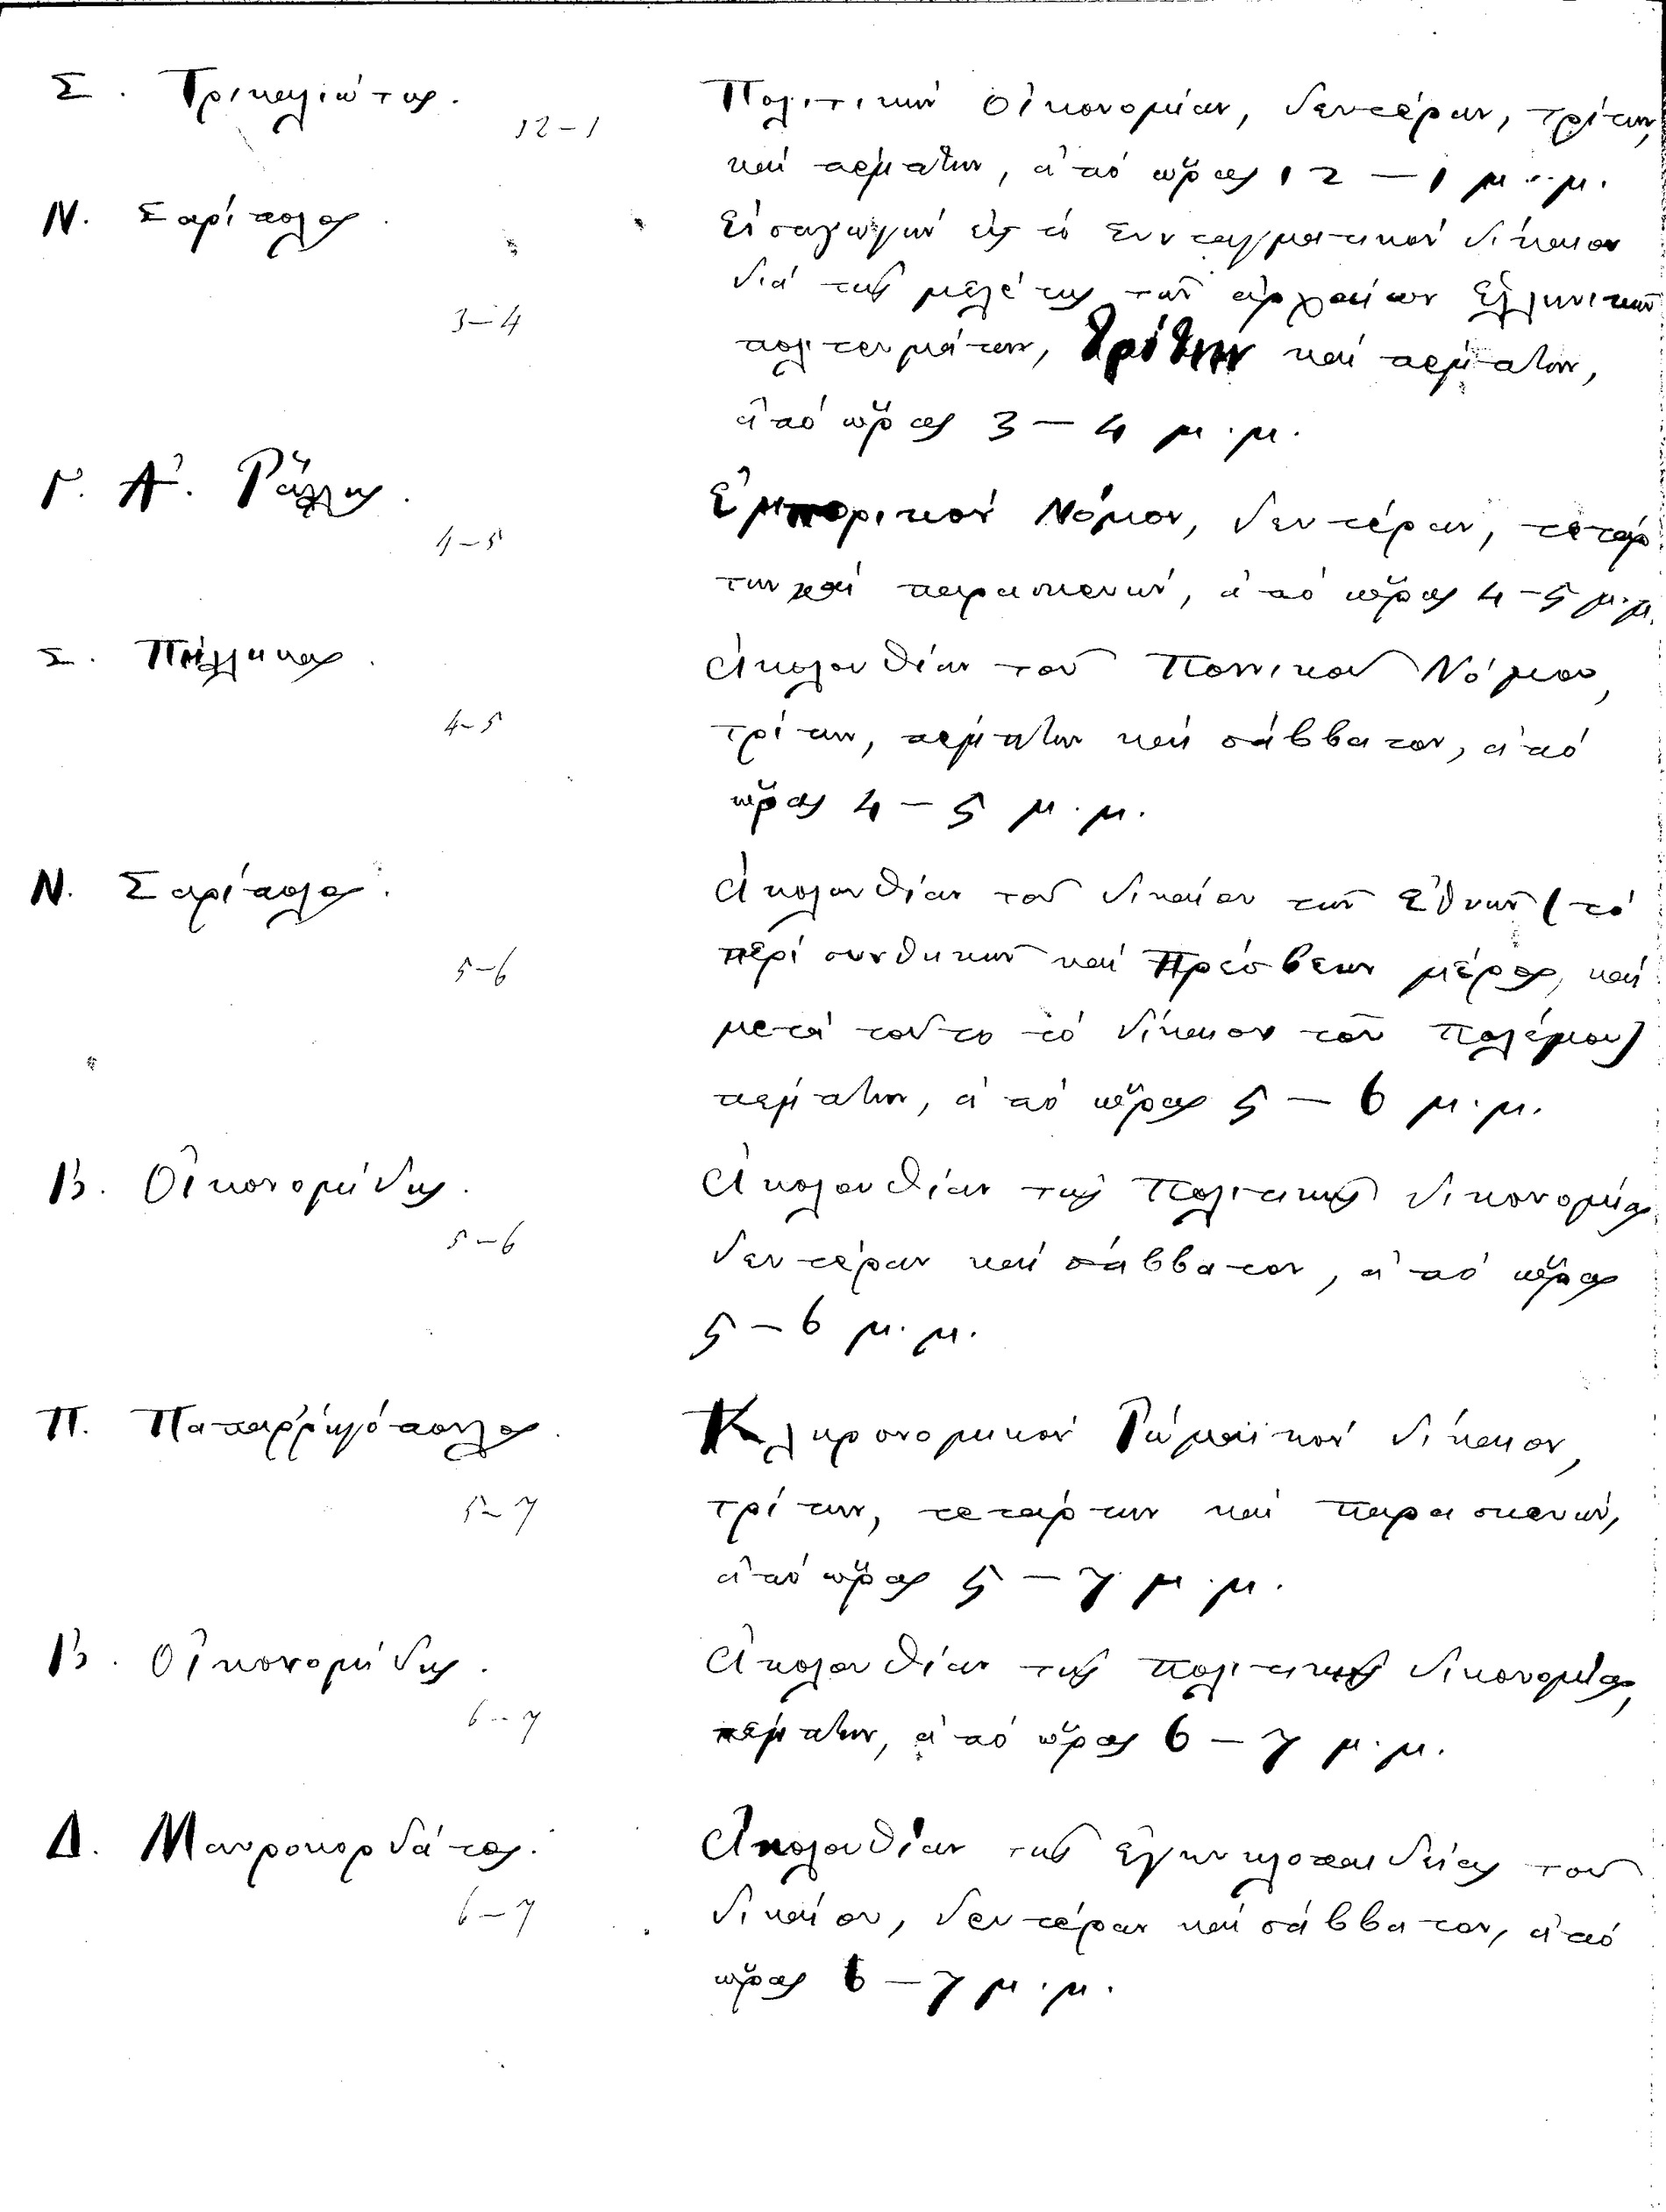 Σ. Τρικαλιώτης.
12-1
Πολιτικήν Οἰκονομίαν, δευτέραν, τρίτην,
καί πέμπτην, ἀπό ὥρας 12 — 1 μ.μ.
Ν. Σαρίπολος.
3-4
Εἰσαγωγήν εἰς τό Συνταγματικόν δίκαιον
διά τῆς μελέτης τῶν ἀρχαίων Ἑλληνικῶν
πολιτευμάτων, τρίτην καί πέμπτην,
ἀπό ὥρας 3 — 4 μ.μ.
Γ. Α. Ράλλης.
4-5
Ἐμπορικόν Νόμον, δευτέραν, τετάρ
την καί παρασκευήν, ἀπό ὥρας 4-5 μ.μ.
Σ. Πήλληκας.
4-5
Ἀκολουθίαν τοῦ Ποινικοῦ Νόμου,
τρίτην, πέμπτην καί σάββατον, ἀπό
ὥρας 4 — 5 μ.μ.
Ν. Σαρίπολος.
5-6
Ἀκολουθίαν τοῦ δικαίου τῶν Ἐθνῶν (τό
περί συνθηκῶν καί Πρέσβεων μέρος, καί
μετά τοῦτο τό δίκαιον τοῦ πολέμου)
πέμπτην, ἀπό ὥρας 5 — 6 μ.μ.
Β. Οἰκονομίδης.
5-6
Ἀκολουθίαν τῆς Πολιτικῆς δικονομίας,
δευτέραν καί σάββατον, ἀπό ὥρας
5 — 6 μ.μ.
Π. Παπαρρηγόπουλος.
5-7
Κληρονομικόν Ρωμαϊκόν δίκαιον,
τρίτην, τετάρτην καί παρασκευήν,
ἀπό ὥρας 5 — 7 μ.μ.
Β. Οἰκονομίδης.
6-7
Ἀκολουθίαν τῆς πολιτικῆς δικονομίας,
πέμπτην, ἀπό ὥρας 6 — 7 μ.μ.
Δ. Μαυροκορδάτος.
6-7
Ἀκολουθίαν τῆς ἐγκυκλοπαιδείας τοῦ
δικαίου, δευτέραν καί σάββατον, ἀπό
ὥρας 6 — 7 μ.μ.